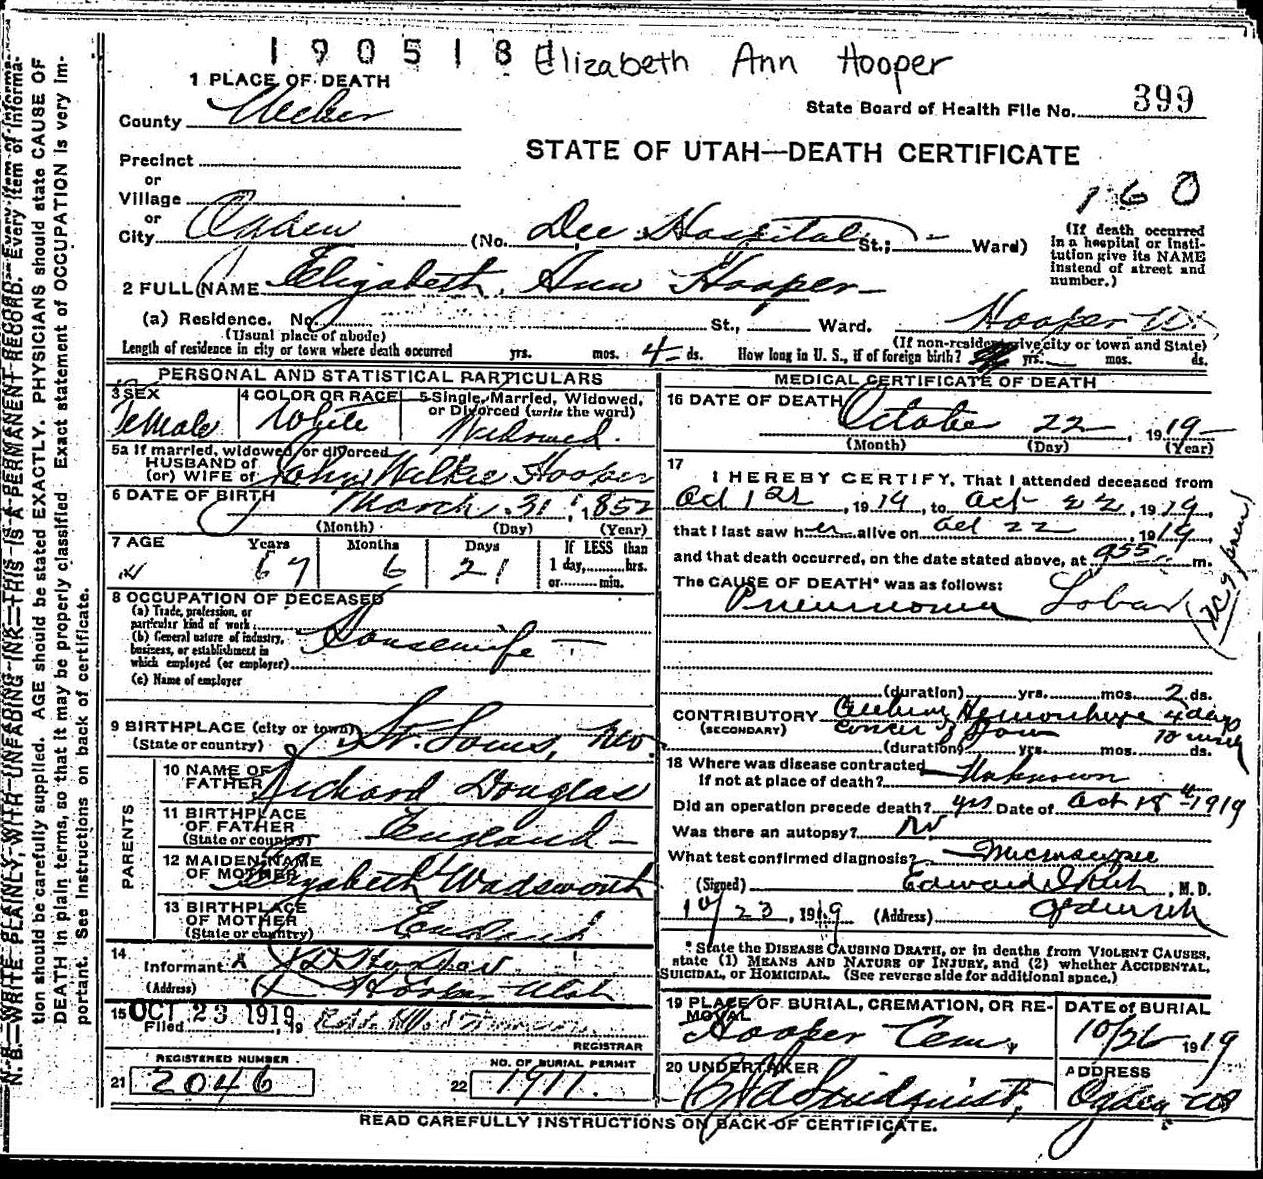 190518 Elizabeth Ann Hooper
1 PLACE OF DEATH
County Weber
State Board of Health File No. 399
STATE OF UTAH—DEATH CERTIFICATE
Precinct
or
Village
160
or
City Ogden (No. Dee Hospital St.; Ward)
(If death occurred
in a hospital or insti-
tution give its NAME
instead of street and
number.)
2 FULL NAME Elizabeth Ann Hooper
(a) Residence. No. St., Ward. Hooper Ut
(Usual place of abode) (If non-resident give city or town and State)
Length of residence in city or town where death occurred yrs. mos. 4 ds. How long in U. S., if of foreign birth? yrs. mos. ds.
PERSONAL AND STATISTICAL PARTICULARS
3 SEX Female
4 COLOR OR RACE White
5 Single, Married, Widowed,
or Divorced (write the word)
Widowed.
5a If married, widowed, or divorced
HUSBAND of
(or) WIFE of John Wilkie Hooper
6 DATE OF BIRTH March 31, 1852
(Month) (Day) (Year)
7 AGE Years 67 Months 6 Days 21
If LESS than
1 day, hrs.
or min.
8 OCCUPATION OF DECEASED
(a) Trade, profession, or
particular kind of work
(b) General nature of industry,
business, or establishment in
which employed (or employer)
Housewife
(c) Name of employer
9 BIRTHPLACE (city or town) St. Louis, Mo.
(State or country)
PARENTS
10 NAME OF
FATHER Richard Douglas
11 BIRTHPLACE
OF FATHER England
(State or country)
12 MAIDEN NAME
OF MOTHER Elizabeth Wadsworth
13 BIRTHPLACE
OF MOTHER England
(State or country)
14
Informant
(Address) Hooper Utah
15 OCT 23 1919
Filed , 19
REGISTRAR
REGISTERED NUMBER
21 2046
NO. OF BURIAL PERMIT
22 1911
MEDICAL CERTIFICATE OF DEATH
16 DATE OF DEATH October 22, 1919
(Month) (Day) (Year)
17
I HEREBY CERTIFY, That I attended deceased from
Oct , 1919, to Oct 22, 1919,
that I last saw her alive on Oct 22, 1919,
and that death occurred, on the date stated above, at 955 m.
The CAUSE OF DEATH* was as follows:
Pneumonia Lobar
(duration) yrs. mos. 2 ds.
CONTRIBUTORY Cerebral Hemorrhage 4 days
(SECONDARY) Cancer of Jaw 10 weeks
(duration) yrs. mos. ds.
18 Where was disease contracted
if not at place of death? Unknown
Did an operation precede death? yes Date of Oct 18 1919
Was there an autopsy? No
What test confirmed diagnosis? Microscopic
(Signed) Edward I Rich, M. D.
10/23, 1919 (Address) Ogden Utah
* State the DISEASE CAUSING DEATH, or in deaths from VIOLENT CAUSES,
state (1) MEANS AND NATURE OF INJURY, and (2) whether ACCIDENTAL,
SUICIDAL, or HOMICIDAL. (See reverse side for additional space.)
19 PLACE OF BURIAL, CREMATION, OR RE-
MOVAL
Hooper Cem,
DATE of BURIAL
10/26 1919
20 UNDERTAKER
Lindquist,
ADDRESS
Ogden Ut
READ CAREFULLY INSTRUCTIONS ON BACK OF CERTIFICATE.
N. B.—WRITE PLAINLY, WITH UNFADING INK—THIS IS A PERMANENT RECORD. Every item of informa-
tion should be carefully supplied. AGE should be stated EXACTLY. PHYSICIANS should state CAUSE OF
DEATH in plain terms, so that it may be properly classified. Exact statement of OCCUPATION is very im-
portant. See instructions on back of certificate.